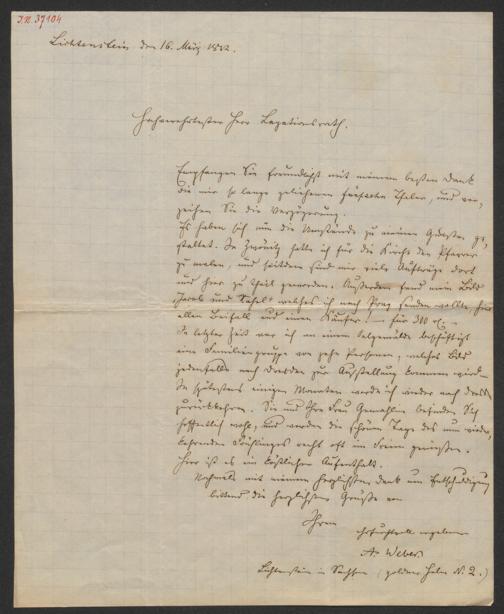 I.N. 37104
Lichtenstein den 16. März 1882.
Hochverehrtester Herr Legationsrath.
Empfangen Sie freundlichst mit meinem besten Dank
die mir so lange geliehenen Thaler, und ver-
zeihen Sie die Verzögerung.
Es haben sich nun die Umstände zu meinen Gunsten ge-
staltet. In Zwönitz hatte ich für die Kirche den Pfarrer
zu malen, und seitdem sind mir viele Aufträge dort
und hier zu Theil geworden. Außerdem fand mein Bild
welches ich nach Prag senden wollte, hier
allen Beifall und einen Käufer! – für 300
In letzter Zeit war ich an einem Oelgemälde beschäftigt
eine Familiengruppe von zehn Personen, welches Bild
jedenfalls nach Dresden zur Ausstellung kommen wird.
In spätestens einigen Monaten werde ich wieder nach Dresd
zurückkehren. Sie und Ihre Frau Gemahlin befinden Sich
hoffentlich wohl, und werden die schönen Tage des nun wieder
kehrenden Frühlinges recht oft im Freien genießen.
Hier ist es ein köstlicher Aufenthalt.
Nochmals mit meinem herzlichsten Dank um Entschuldigung
bittend die herzlichsten Grüße von
Ihrem
ehrfurchtsvoll ergebenen
A. Weber
Lichtenstein in Sachsen (goldner Helm N. 2.)